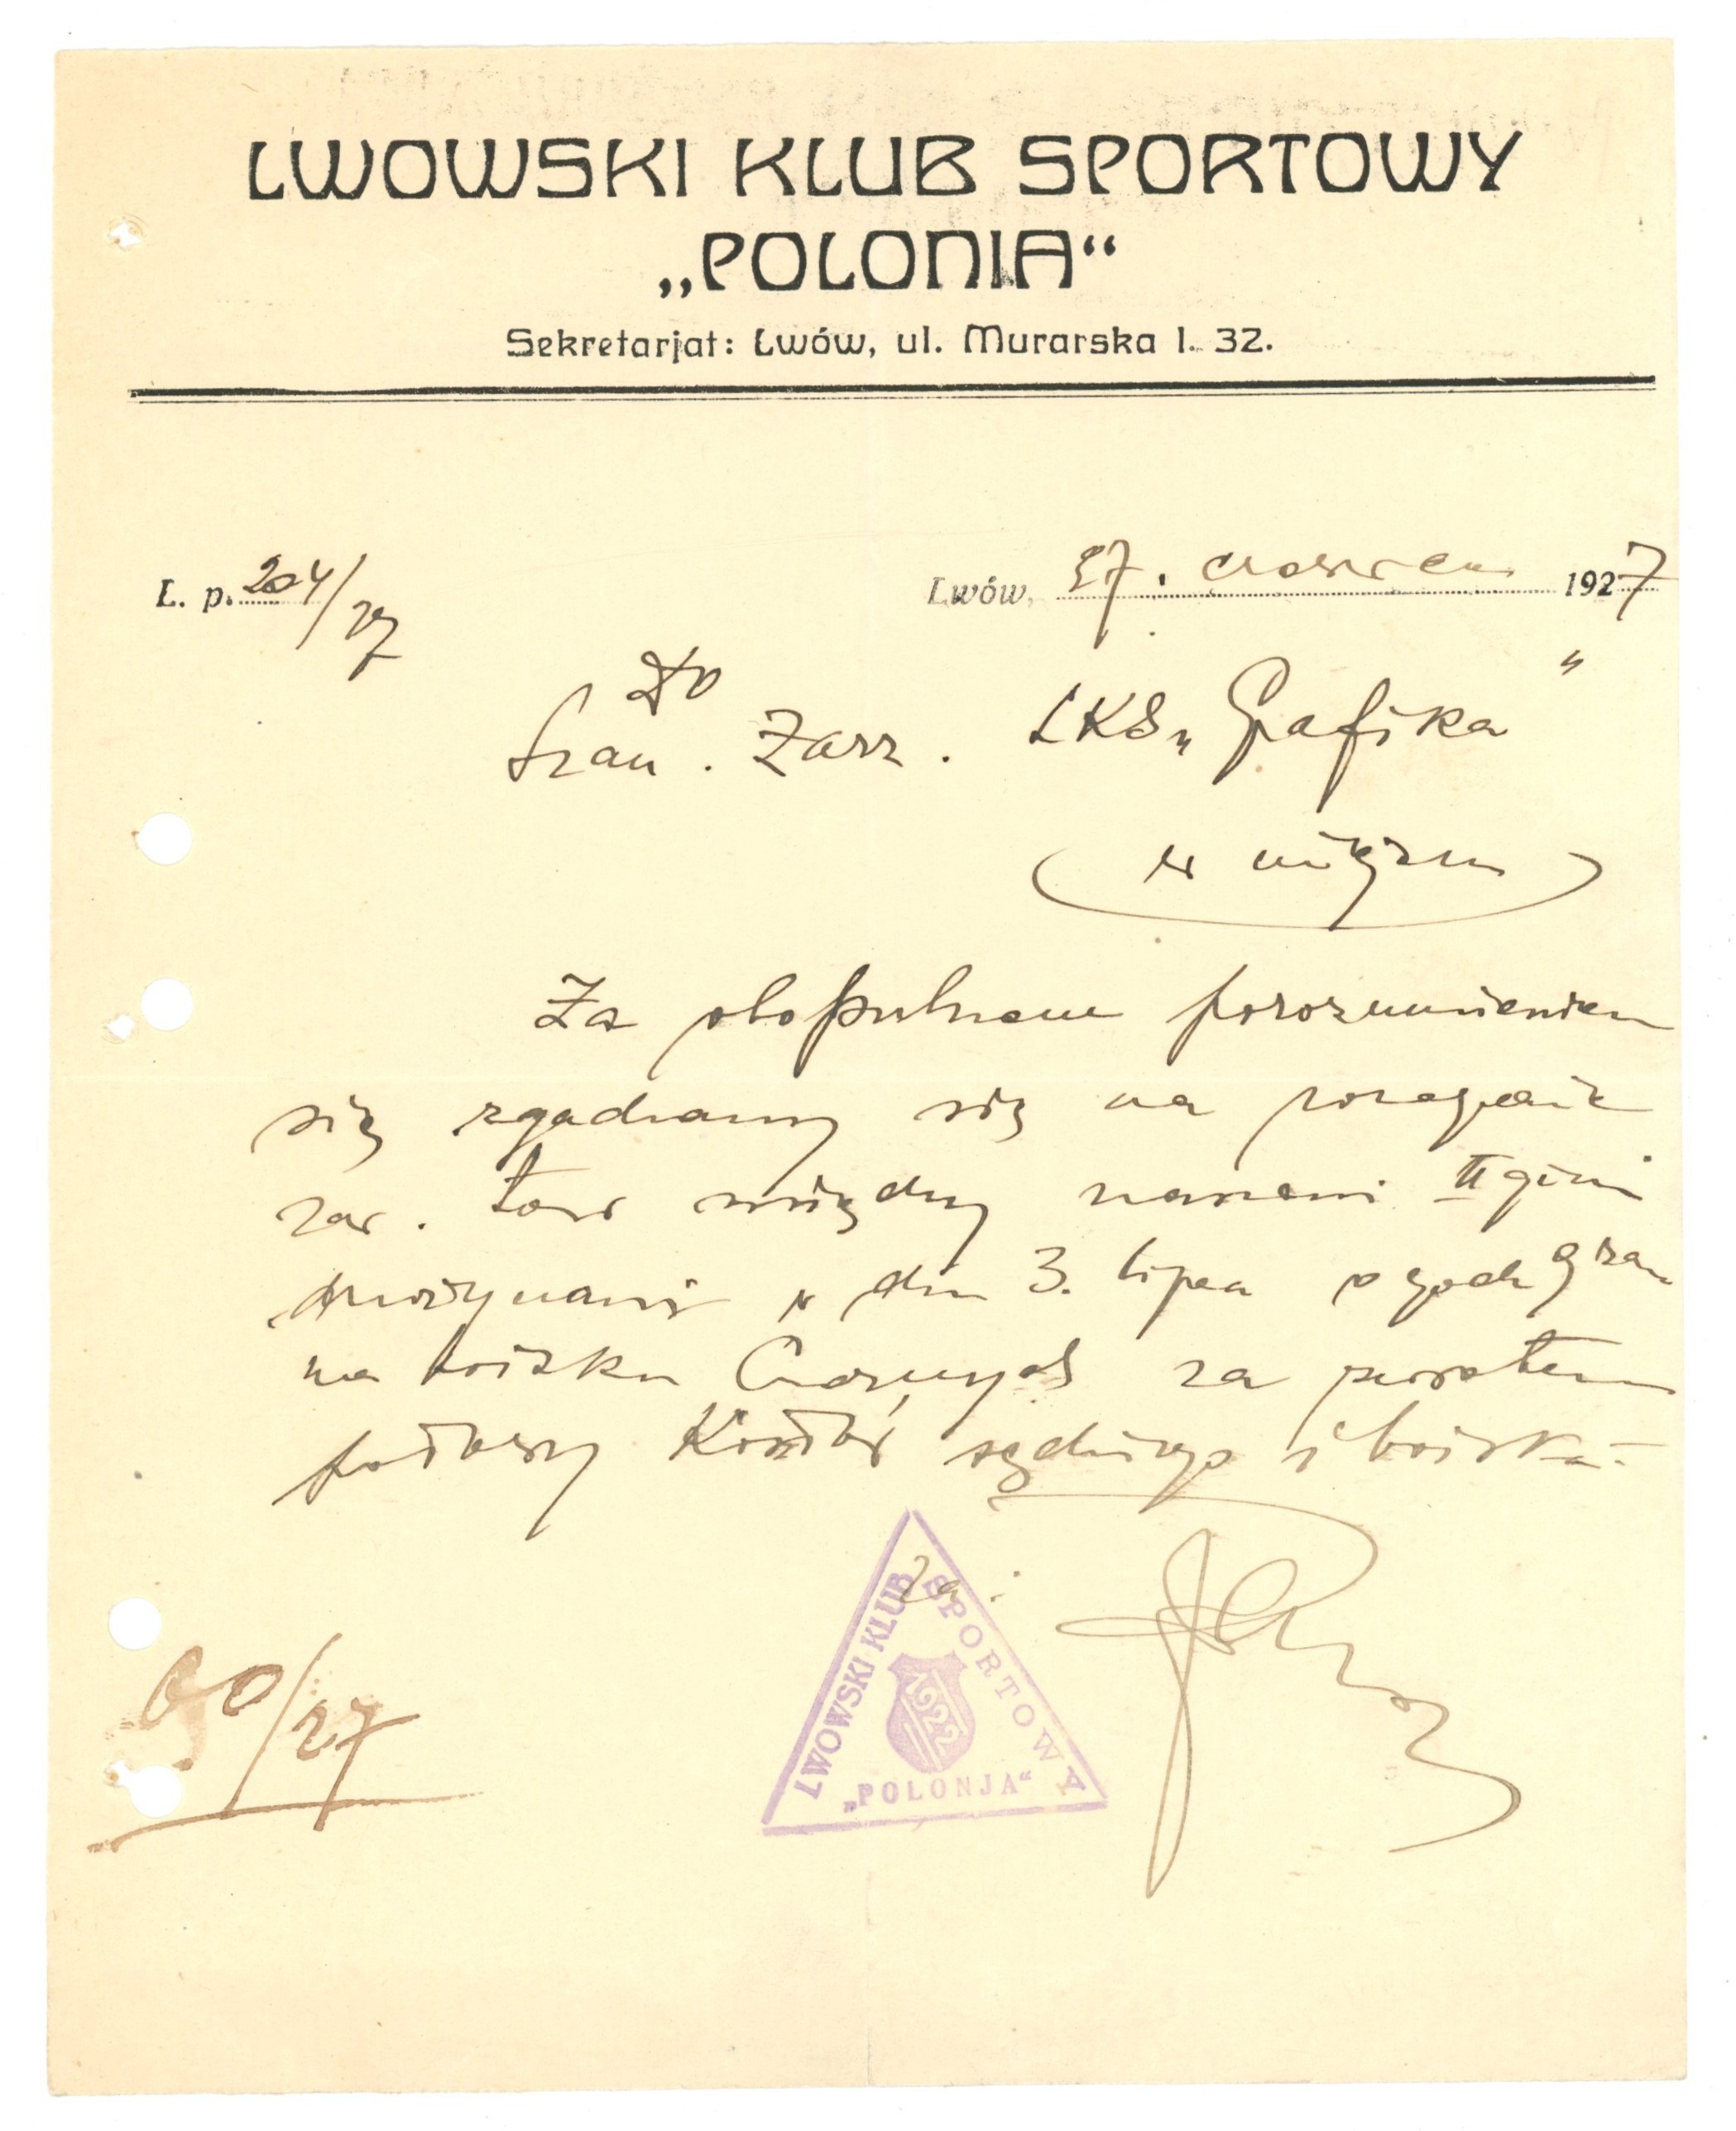 LWOWSKI KLUB SPORTOWY
„POLONIA“
Sekretarjat: Lwów, ul. Murarska l. 32.
L. p. 204/27
Lwów, 27. czerwca 1927
Do
Szan. Zarz. LKS „Grafika"
w miejscu
Za obopulnem porozumieniem
się zgadzamy się na rozegranie
zaw. tow między naszemi IIgimi
drużynami w dniu 3. lipca o godz 9 rano
na boisku Czarnych za zwrotem
połowy kosztów sędziego i boiska.
Za:
LWOWSKI KLUB SPORTOWA
1922
„POLONJA“
60/27